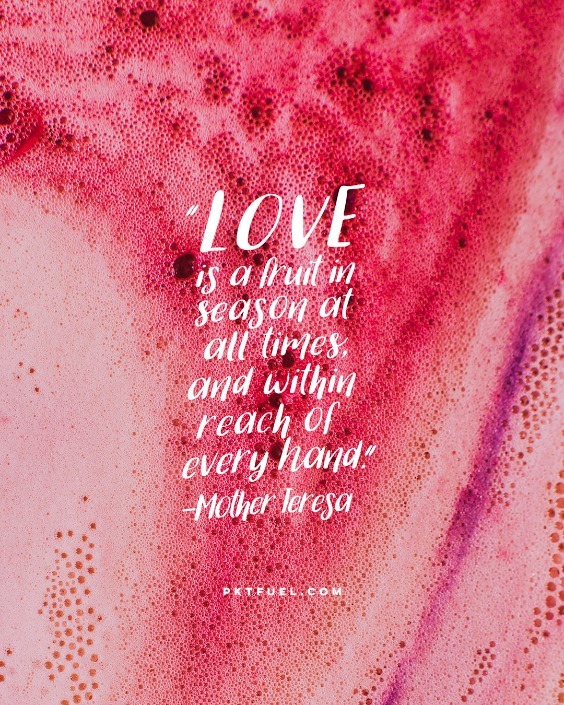 "LOVE
is a fruit in
season at
all times,
and within
reach of
every hand."
-Mother Teresa
PKTFUEL.COM